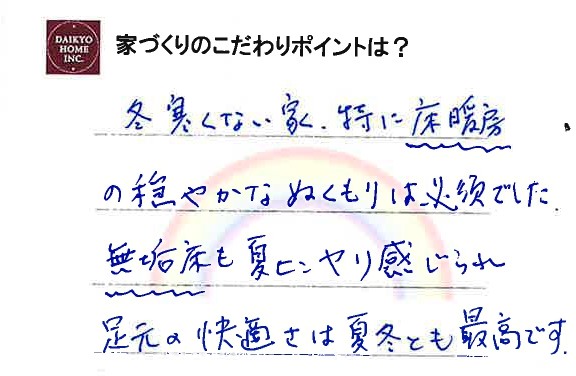 DAIKYO
HOME
INC.
家づくりのこだわりポイントは？
冬寒くない家、特に床暖房
の穏やかなぬくもりは必須でした
無垢床も夏ヒンヤリ感じられ
足元の快適さは夏冬とも最高です.